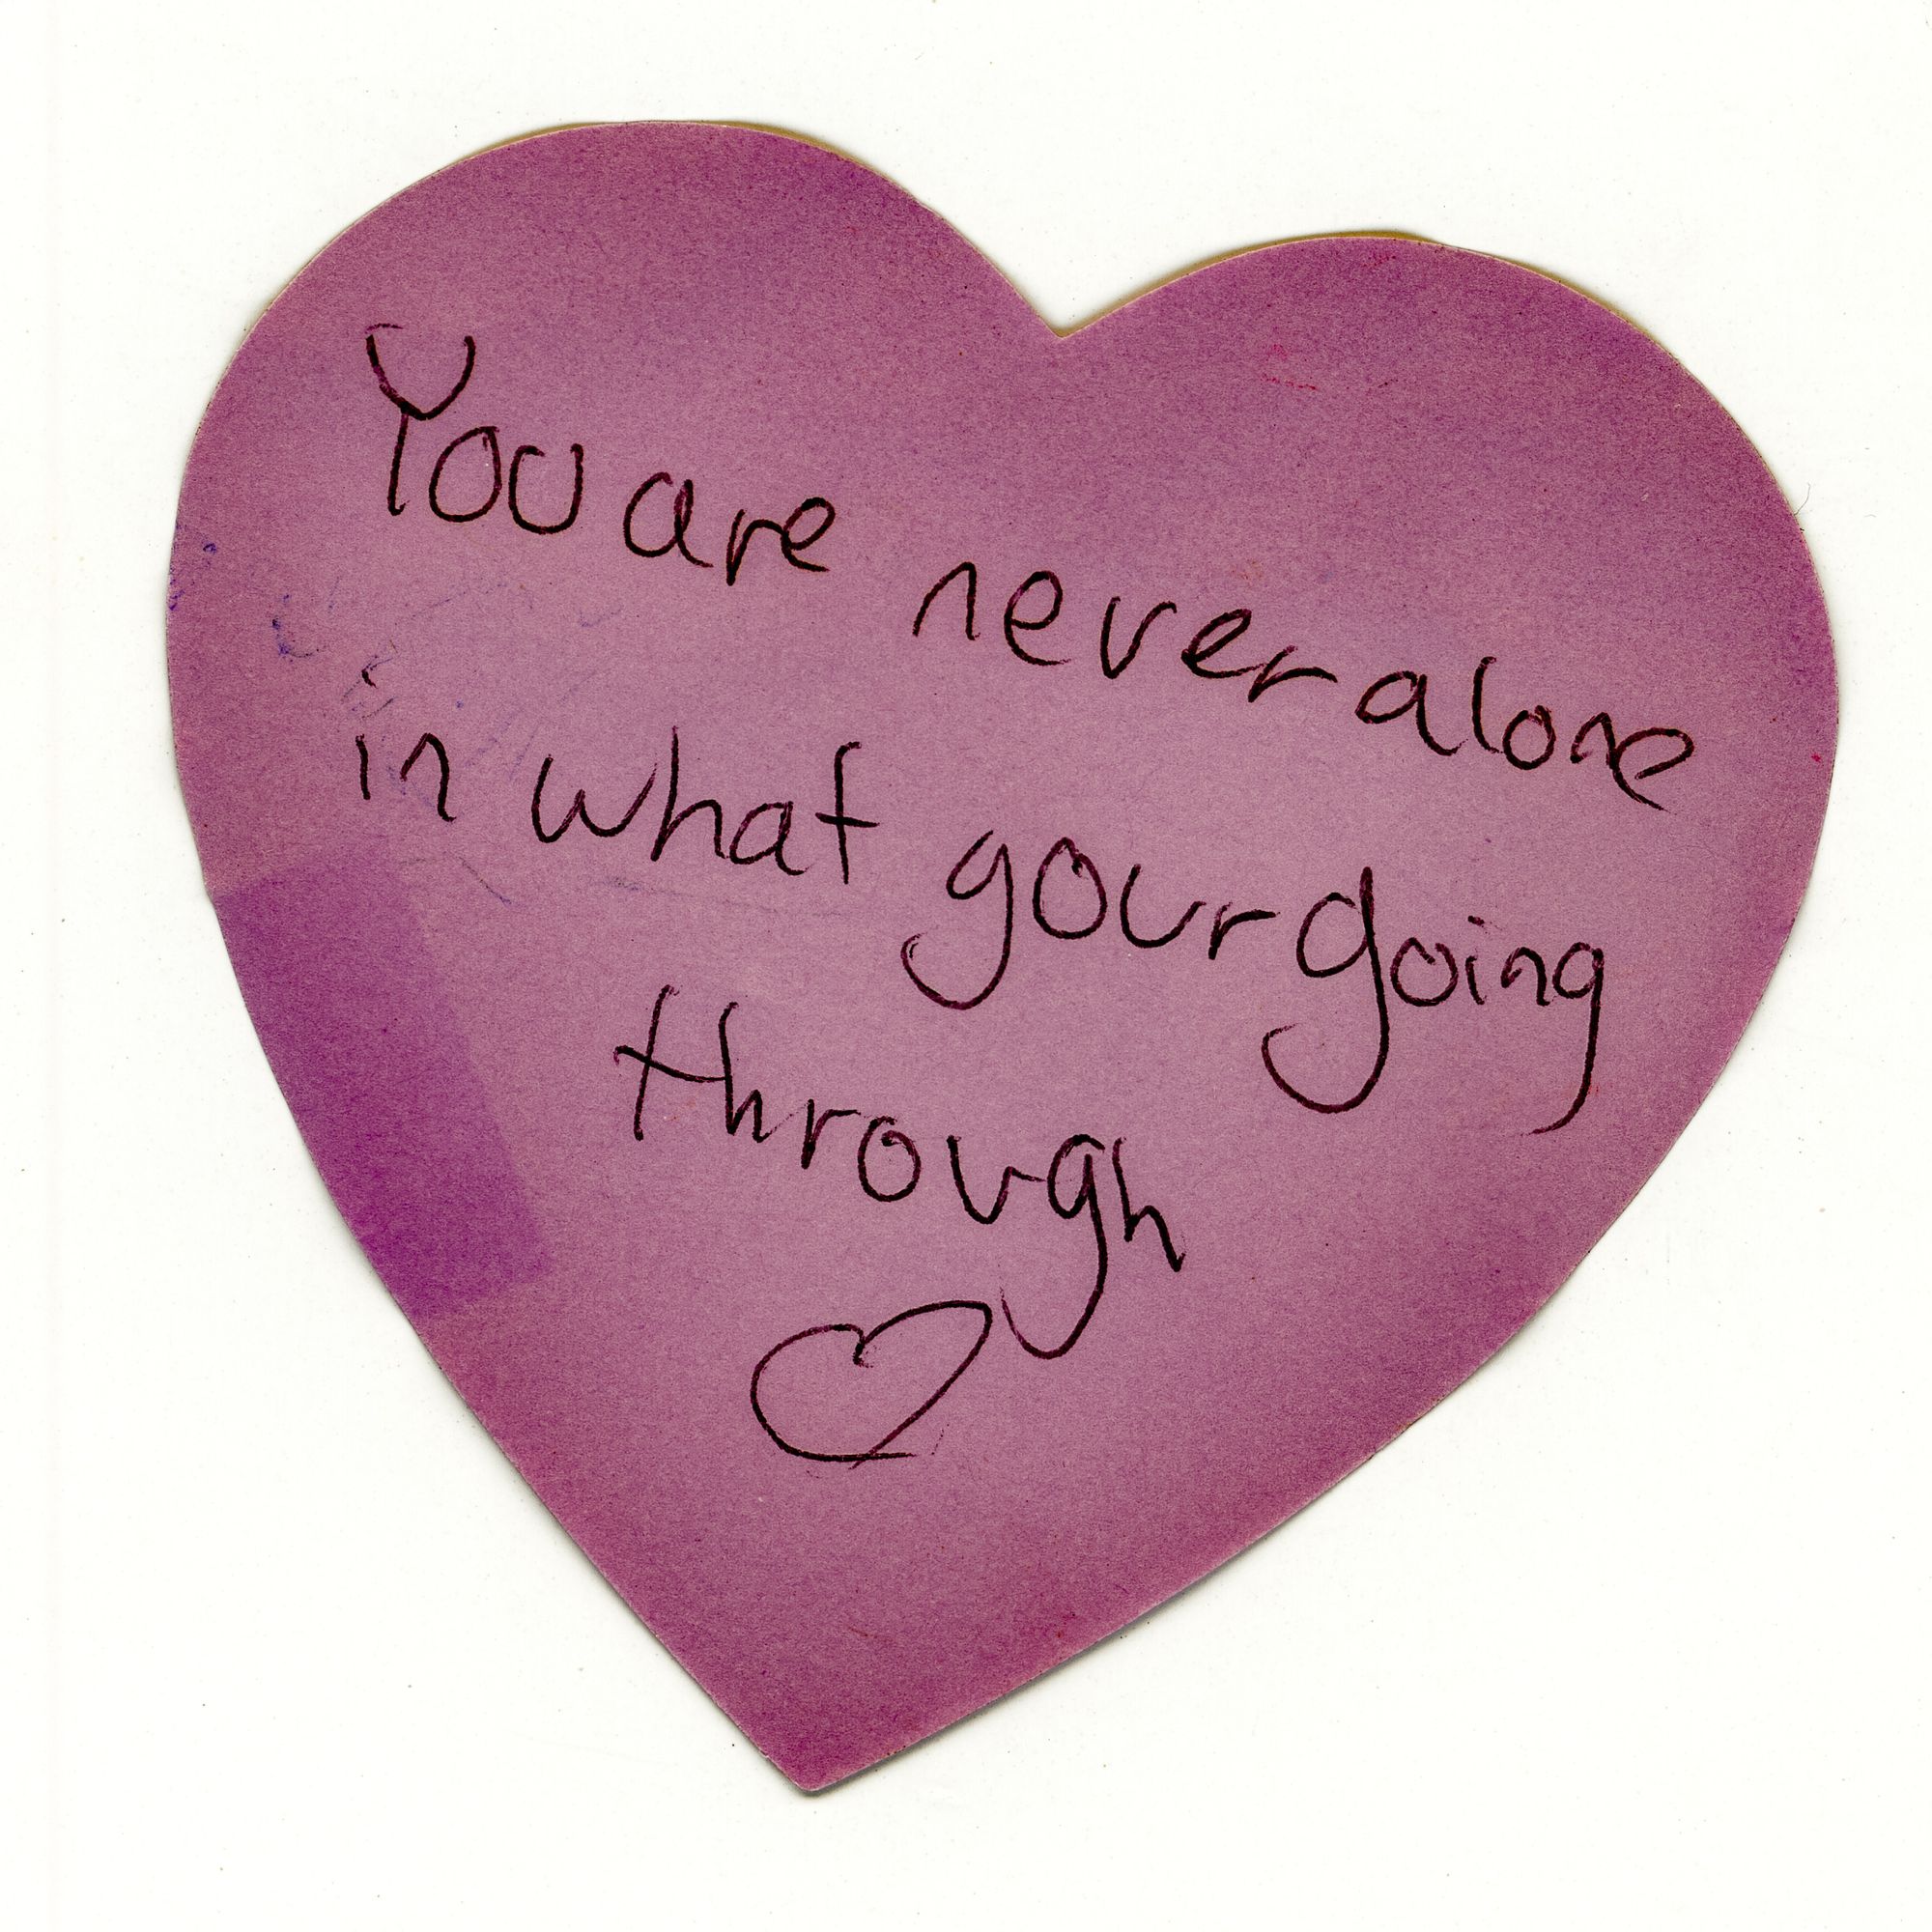 You are never alone
in what your going
through